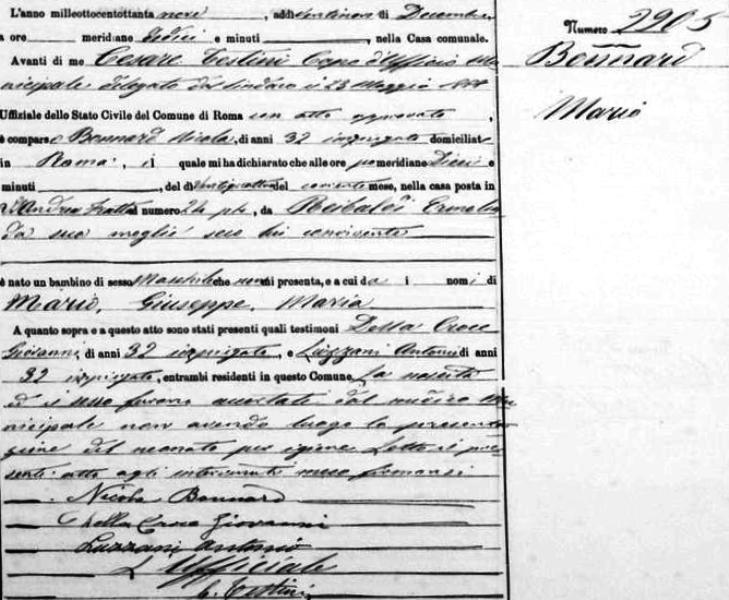 L'anno milleottocentottanta nove, addì ventinove di Decembre
a ore meridiane dodici e minuti, nella Casa comunale.
Avanti di me Cesare Testini Capo d'Ufficio Mu
nicipale delegato dal Sindaco il 23 Maggio
Uffiziale dello Stato Civile del Comune di Roma con atto approvato,
è comparso Bonnard Nicola, di anni 32 impiegato domiciliat
in Roma, il quale mi ha dichiarato che alle ore pomeridiane Dieci e
minuti, del dì ventiquattro del corrente mese, nella casa posta in
S. Andrea Fratte al numero 24 p, da Rebaldi Ermelin
da sua moglie seco lui convivente
è nato un bambino di sesso Maschile che non mi presenta, e a cui da i nomi di
Mario, Giuseppe, Maria
A quanto sopra e a questo atto sono stati presenti quali testimoni Della Croce
Giovanni, di anni 32 impiegato, e Luzzani Antonio di anni
32 impiegato, entrambi residenti in questo Comune. La nascita
ed il sesso furono accertate dal medico Mu
nicipale non avendo luogo la presenta
zione del neonato per igiene. Letto il pre
sente atto agli intervenuti meco firmansi
Nicola Bonnard
Della Croce Giovanni
Luzzani Antonio
L'Ufficiale
C. Testini
Numero 2905
Bonnard
Mario